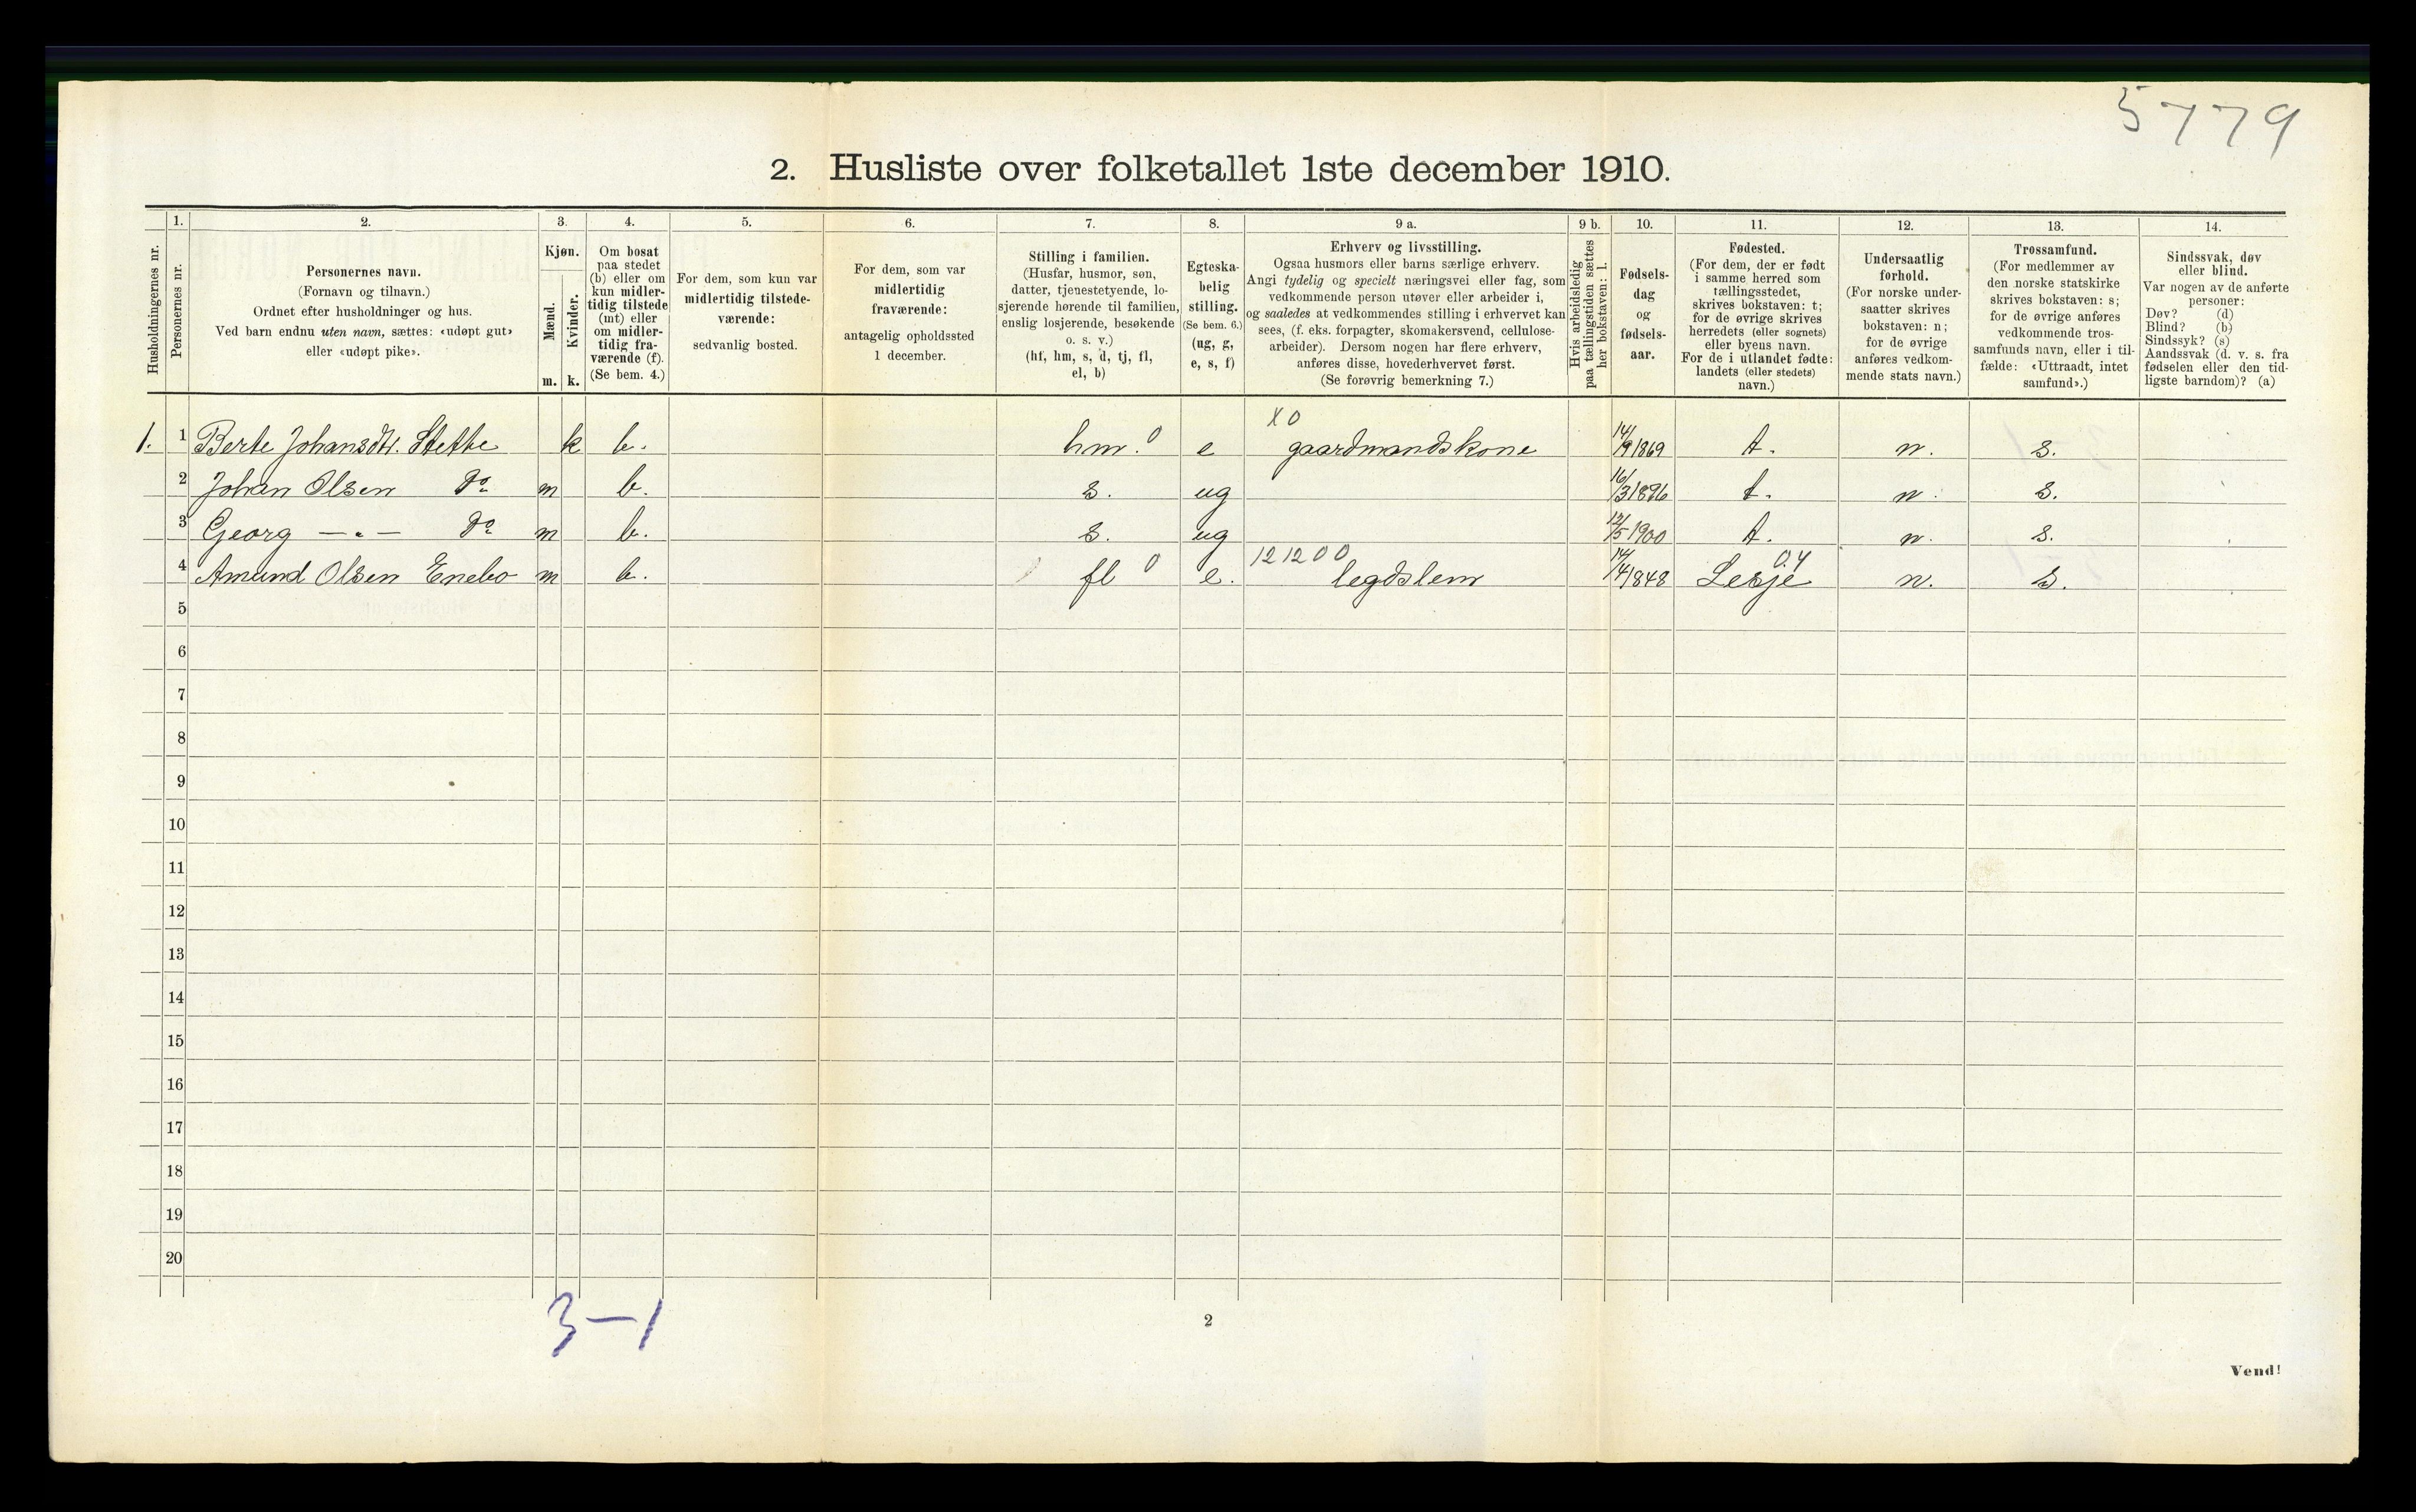 5779
2. Husliste over folketallet 1ste december 1910.
Husholdningernes nr.
1.
Personernes nr.
2.
Personernes navn.
(Fornavn og tilnavn.)
Ordnet efter husholdninger og hus.
Ved barn endnu uten navn, sættes: «udøpt gut»
eller «udøpt pike».
3.
Kjøn.
Mænd.
Kvinder.
m. k.
4.
Om bosat
paa stedet
(b) eller om
kun midler-
tidig tilstede
(mt) eller
om midler-
tidig fra-
værende (f).
(Se bem. 4.)
5.
For dem, som kun var
midlertidig tilstede-
værende:
sedvanlig bosted.
6.
For dem, som var
midlertidig
fraværende:
antagelig opholdssted
1 december.
7.
Stilling i familien.
(Husfar, husmor, søn,
datter, tjenestetyende, lo-
sjerende hørende til familien,
enslig losjerende, besøkende
o. s. v.)
(hf, hm, s, d, tj, fl,
el, b)
8.
Egteska-
belig
stilling.
(Se bem. 6.)
(ug, g,
e, s, f)
9 a.
Erhverv og livsstilling.
Ogsaa husmors eller barns særlige erhverv.
Angi tydelig og specielt næringsvei eller fag, som
vedkommende person utøver eller arbeider i,
og saaledes at vedkommendes stilling i erhvervet kan
sees, (f. eks. forpagter, skomakersvend, cellulose-
arbeider). Dersom nogen har flere erhverv,
anføres disse, hovederhvervet først.
(Se forøvrig bemerkning 7.)
9 b.
Hvis arbeidsledig
paa tællingstiden sættes
her bokstaven: l.
10.
Fødsels-
dag
og
fødsels-
aar.
11.
Fødested.
(For dem, der er født
i samme herred som
tællingsstedet,
skrives bokstaven: t;
for de øvrige skrives
herredets (eller sognets)
eller byens navn.
For de i utlandet fødte:
landets (eller stedets)
navn.)
12.
Undersaatlig
forhold.
(For norske under-
saatter skrives
bokstaven: n;
for de øvrige
anføres vedkom-
mende stats navn.)
13.
Trossamfund.
(For medlemmer av
den norske statskirke
skrives bokstaven: s;
for de øvrige anføres
vedkommende tros-
samfunds navn, eller i til-
fælde: «Uttraadt, intet
samfund».)
14.
Sindssvak, døv
eller blind.
Var nogen av de anførte
personer:
Døv? (d)
Blind? (b)
Sindssyk? (s)
Aandssvak (d. v. s. fra
fødselen eller den tid-
ligste barndom)? (a)
X 0
1. 1 Berte Johansdtr. Stette k b. hm. 0 e gaardmandskone 14/9 1869 t. n. s.
2 Johan Olsen do m b. s. ug 16/3 1896 t. n. s.
3 Georg —"— do m b. s. ug 12/5 1900 t. n. s.
12 12 0 0 04
4 Amund Olsen Enebo m b. fl 0 e. legdslem 14/4 1848 Lesje n. s.
5
6
7
8
9
10
11
12
13
14
15
16
17
18
19
20
3-1
2
Vend!